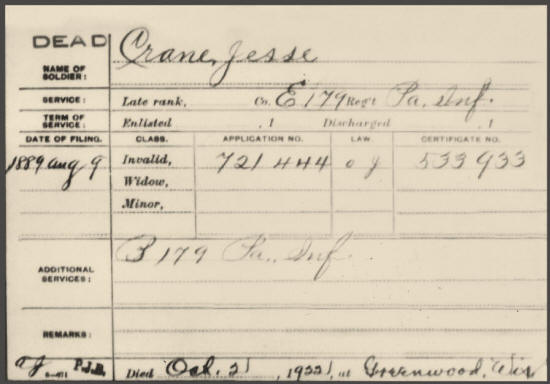 DEAD
NAME OF SOLDIER: Crane, Jesse
SERVICE: Late rank, Co. E 179 Reg't Pa. Inf.
TERM OF SERVICE: Enlisted , 1 Discharged , 1
DATE OF FILING. CLASS. APPLICATION NO. LAW. CERTIFICATE NO.
1889 Aug 9 Invalid, 721 444 533 933
Widow,
Minor,
ADDITIONAL SERVICES: B 179 Pa. Inf
REMARKS:
P.J.B. Died Oct. 21, 1922, at Greenwood, Wis